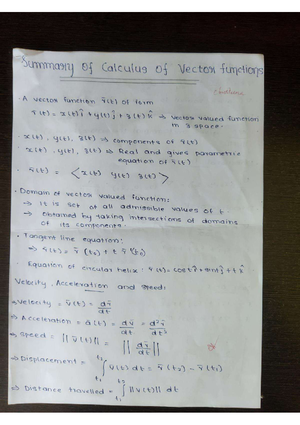 Summary Of Calculus Of Vector functions
• A vector function r̄(t) of form
r̄(t) = x(t)î + y(t)ĵ + z(t)k̂ → vector valued function
in 3 space.
• x(t), y(t), z(t) ⇒ components of r̄(t)
• x(t), y(t), z(t) ⇒ Real and gives parametric
equation of r̄(t)
• r̄(t) = ⟨x(t) y(t) z(t)⟩
• Domain of vector valued function:
→ It is set of all admissible values of t
→ obtained by taking intersections of domains
of its components.
• Tangent line equation:
⇒ r̄(t) = r̄(t₀) + t r̄'(t₀)
Equation of circular helix: r̄(t) = cost î + sint ĵ + t k̂
Velocity, Acceleration and speed:
→ Velocity = v̄(t) = dr̄/dt
→ Acceleration = ā(t) = dv̄/dt = d²r̄/dt²
→ Speed = ||v̄(t)|| = ||dr̄/dt||
→ Displacement = ∫ₜ₁^t₂ v̄(t) dt = r̄(t₂) - r̄(t₁)
→ Distance travelled = ∫ₜ₁^t₂ ||v̄(t)|| dt